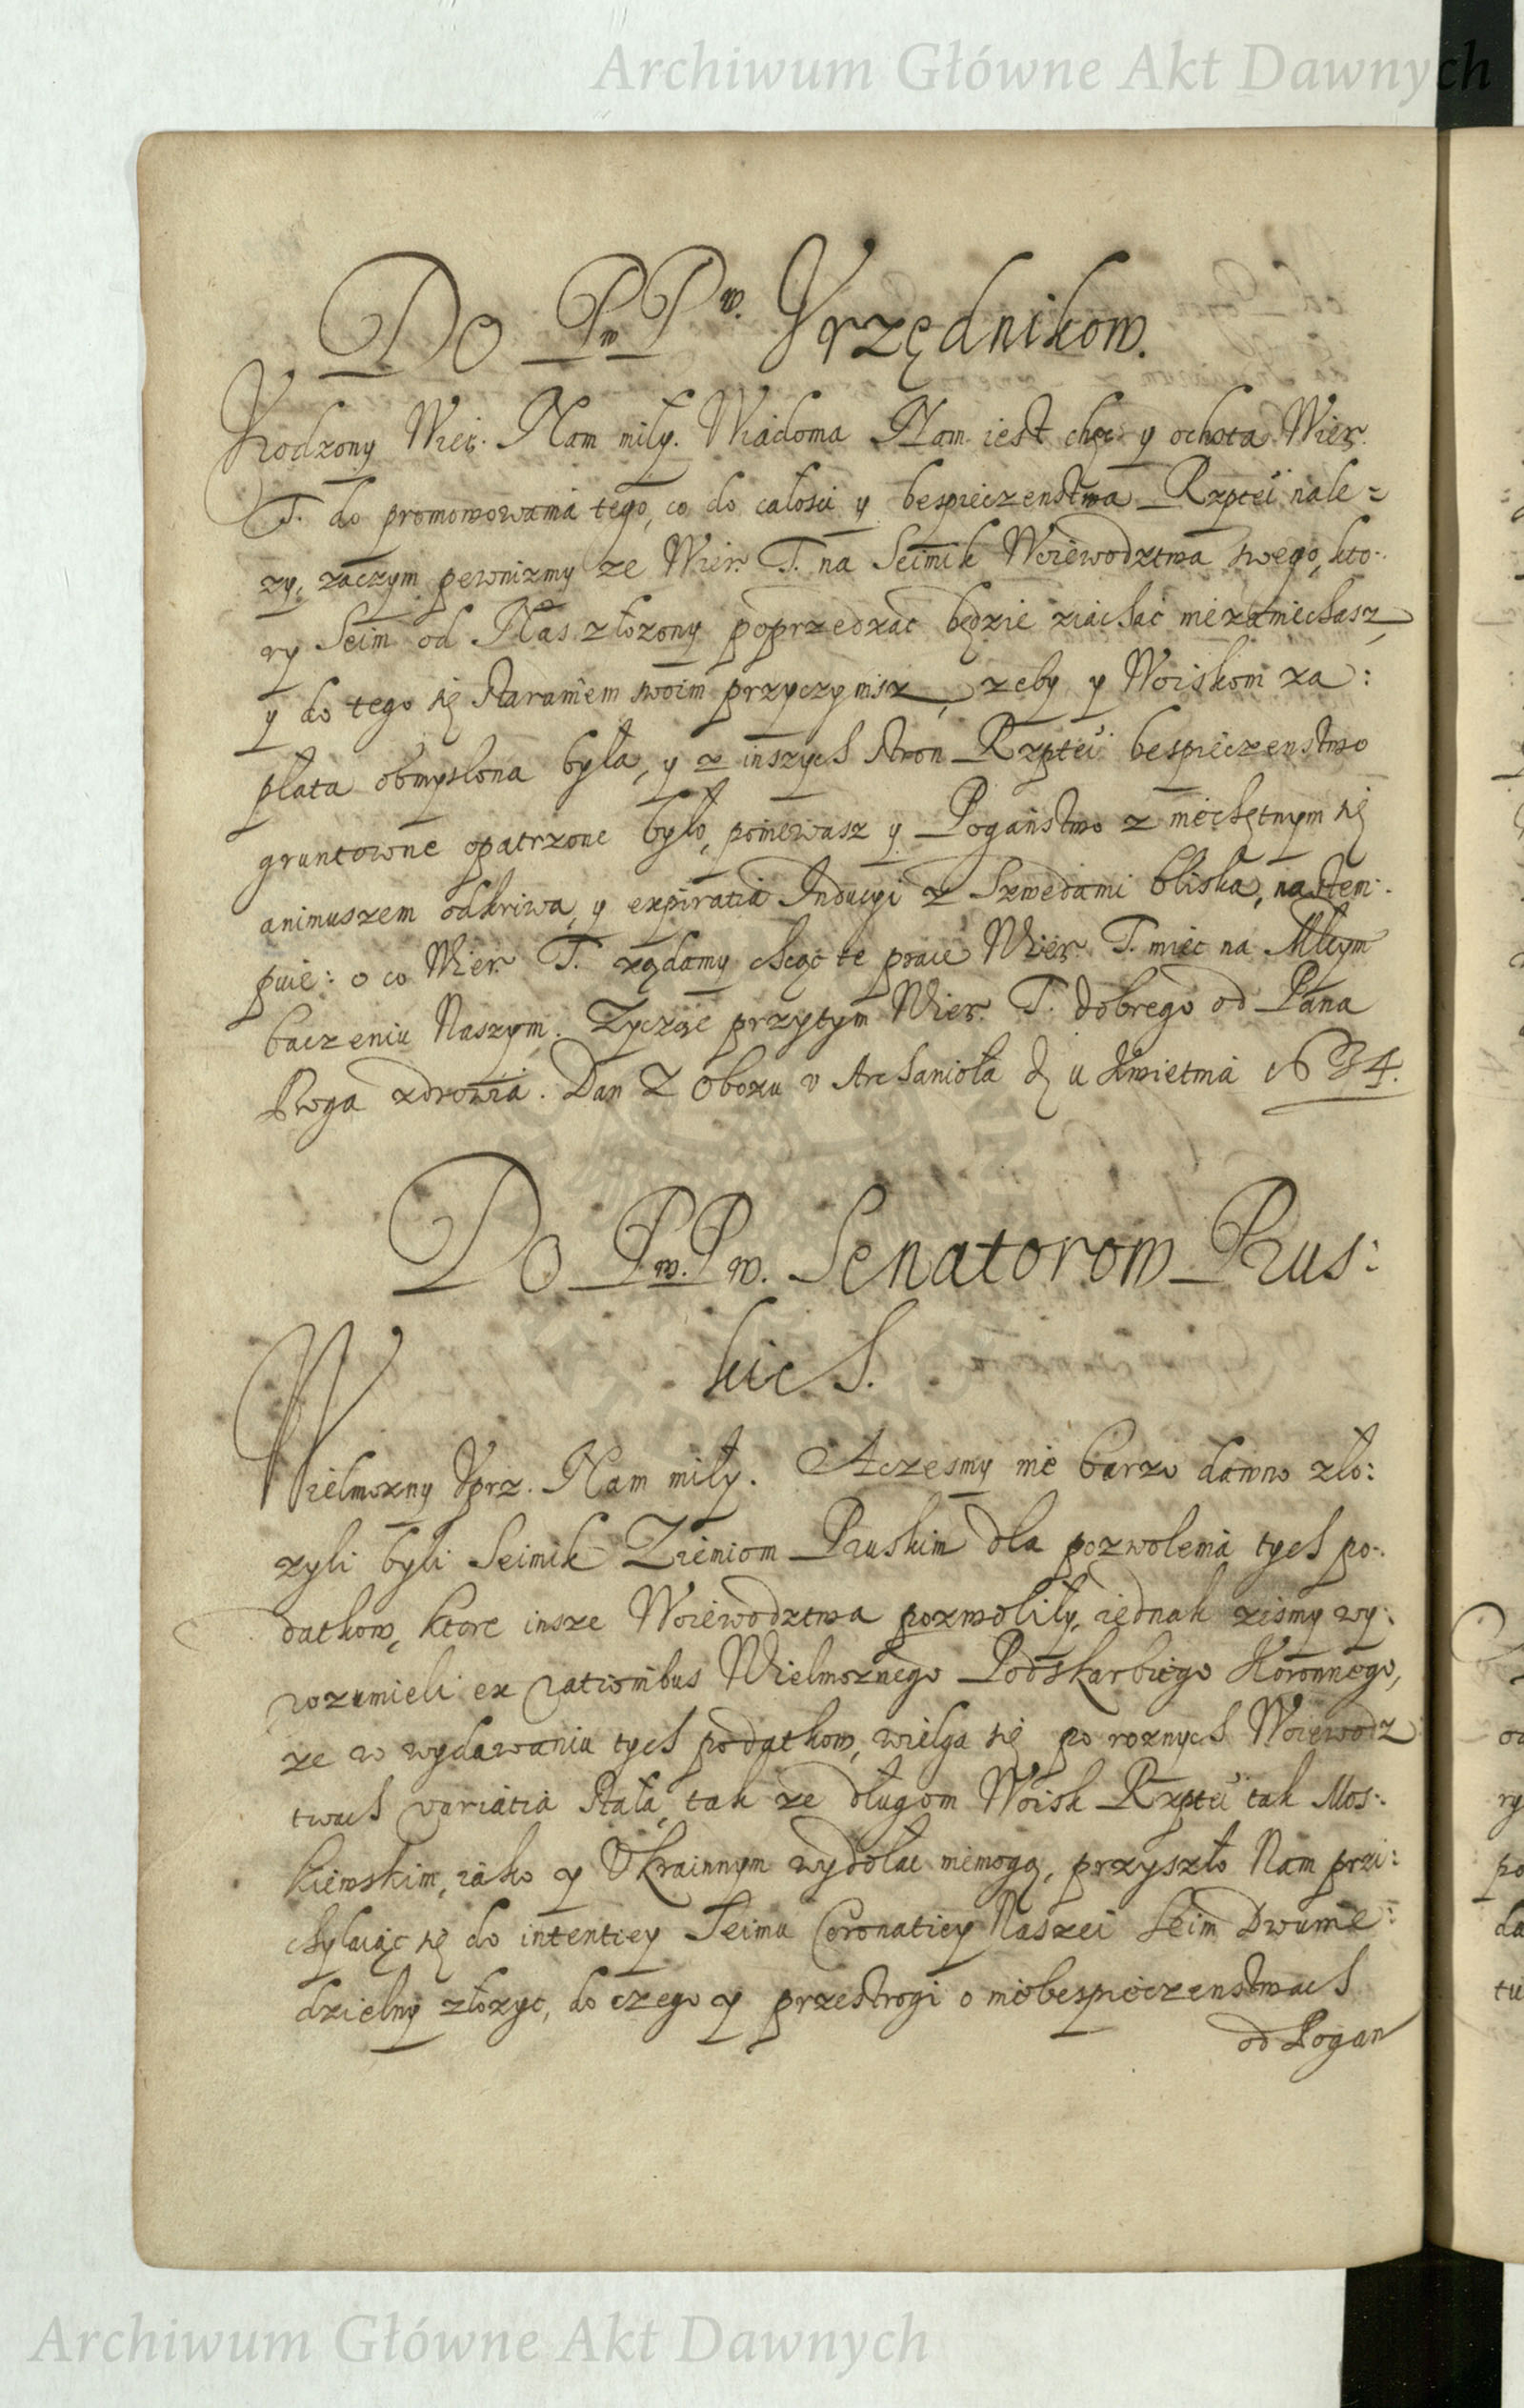 Archiwum Główne Akt Dawnych
Do Pw Pw. Vrzędnikow.
Vrodzony Wier. Nam miły. Wiadoma Nam iest chęć y ochota Wier.
T. do promowowania tego, co do całosci y bespieczenstwa Rzptei nale=
zy, zaczym pewnizmy ze Wier. T. na Seimik Woiewodztwa swego, kto:
ry Seim od Nas złozony poprzedzać będzie ziachać niezamiechasz
y do tego się staraniem swoim przyczynisz, zeby y Woiskom za:
płata obmyslona była, y z inszych stron Rzptei bespieczenstwo
gruntowne opatrzone było, poniewasz y Poganstwo z niechętnym się
animuszem odkriwa, y expiratia Inducyi z Szwedami bliska, nastem:
puie: o co Wier. T. ządamy chcąc te prace Wier. T. miec na Młtym
baczeniu Naszym. Zycząc przytym Wier. T. dobrego od Pana
Boga zdrowia. Dan z Obozu v Archanioła D u Kwietnia 1634.
Do Pw. Pw. Senatorow Prus:
kich.
Wielmozny Vprz. Nam miły. Aczesmy nie barzo dawno zło:
zyli byli Seimik Ziemiom Pruskim dla pozwolenia tych po:
datkow, ktore insze Woiewodztwa pozwoliły, iednak zismy wy:
rozumieli ex rationibus Wielmoznego Podskarbiego Koronnego,
ze w wydawaniu tych podatkow, wielga się po roznych Woiewodz
twach variatia stała, tak ze długom Woisk Rzptei tak Mos:
kiewskim, iako y Vkrainnym wydołac niemogą, przyszło Nam przi:
chylaiąc się do intentiey Seimu Coronatiey Naszei Seim Dwunie:
dzielny złozyc, do czego y przestrogi o niebespieczenstwach
od Pogan
Archiwum Główne Akt Dawnych